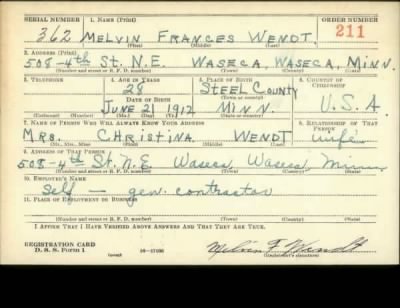 SERIAL NUMBER 1. NAME (Print) ORDER NUMBER
362 MELVIN FRANCES WENDT 211
(First) (Middle) (Last)
2. ADDRESS (Print)
508-4th ST. N.E. WASECA, WASECA, MINN.
(Number and street or R. F. D. number) (Town) (County) (State)
3. TELEPHONE 4. AGE IN YEARS 5. PLACE OF BIRTH 6. COUNTRY OF CITIZENSHIP
28 STEEL COUNTY
DATE OF BIRTH (Town or county)
JUNE 21 1912 MINN. U.S.A.
(Exchange) (Number) (Mo.) (Day) (Yr.) (State or country)
7. NAME OF PERSON WHO WILL ALWAYS KNOW YOUR ADDRESS 8. RELATIONSHIP OF THAT PERSON
MRS. CHRISTINA WENDT wife
(Mr., Mrs., Miss) (First) (Middle) (Last)
9. ADDRESS OF THAT PERSON
508-4th St. N.E. Waseca, Waseca, Minn.
(Number and street or R. F. D. number) (Town) (County) (State)
10. EMPLOYER'S NAME
Self - gen. contractor
11. PLACE OF EMPLOYMENT OR BUSINESS
(Number and street or R. F. D. number) (Town) (County) (State)
I AFFIRM THAT I HAVE VERIFIED ABOVE ANSWERS AND THAT THEY ARE TRUE.
REGISTRATION CARD
D. S. S. Form 1 (over) Melvin F Wendt
(Registrant's signature)